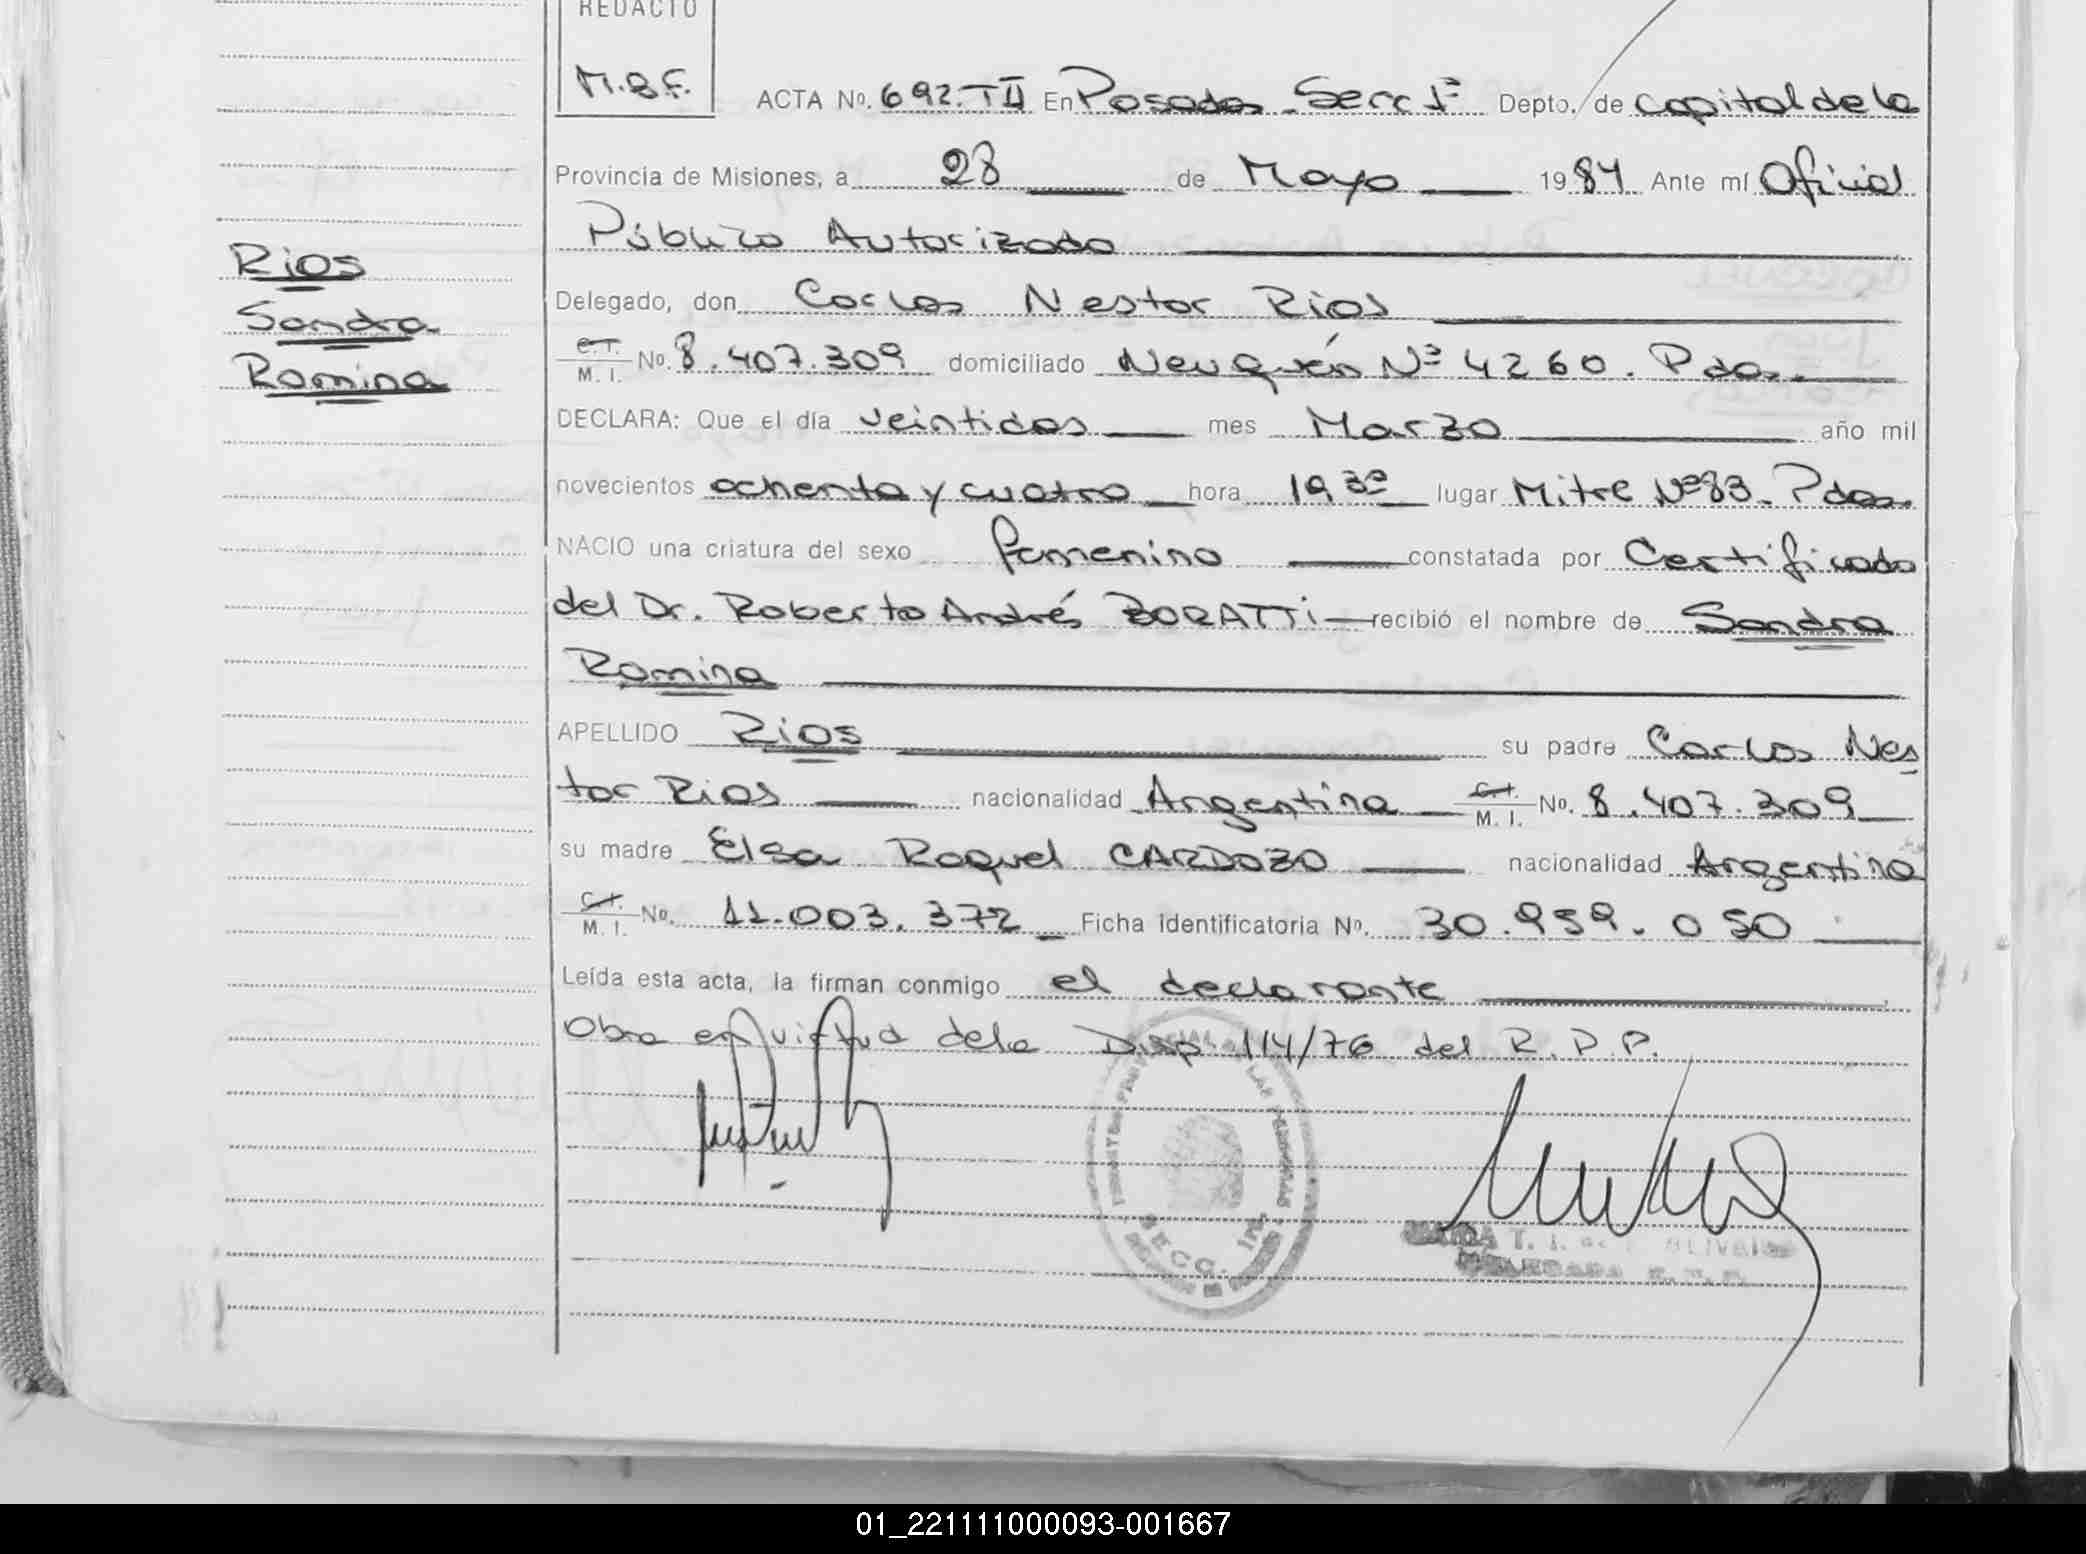 REDACTO
M.B.F.
ACTA No. 692. T II En Posadas Secc 1ª Depto. de Capital de la
Provincia de Misiones, a 28 de Mayo 1984 Ante mí Oficial
Público Autorizado
Rios
Sandra
Romina
Delegado, don Carlos Nestor Rios
C.I. M. I. No. 8.407.309 domiciliado Neuquén Nº 4260. Pdas.
DECLARA: Que el día veintidos mes Marzo año mil
novecientos ochenta y cuatro hora 19 30 lugar Mitre Nº 83. Pdas.
NACIO una criatura del sexo femenino constatada por Certificado
del Dr. Roberto Andrés BORATTI recibió el nombre de Sandra
Romina
APELLIDO Rios su padre Carlos Nes
tor Rios nacionalidad Argentina C.I. M. I. No. 8.407.309
su madre Elsa Raquel CARDOZO nacionalidad Argentina
C.I. M. I. No. 11.003.372 Ficha identificatoria No. 30.959.050
Leída esta acta, la firman conmigo el declarante
Obra en virtud de la Disp 114/76 del R.P.P.
DE LAS PERSONAS
SECC. 1ra.
T.
DELEGADA
01_221111000093-001667